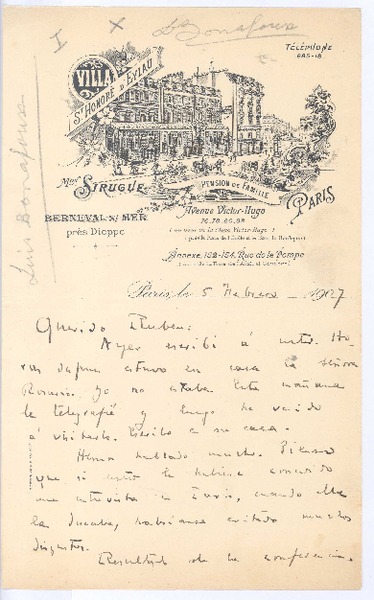 I x L Bonafoux
TÉLÉPHONE
VILLA
ST HONORÉ D'EYLAU
Luis Bonafoux
Mme STRUGUE
PENSION DE FAMILLE
PARIS
BERNEVAL S/ MER
près Dieppe
Avenue Victor-Hugo
Annexe, 152-154, Rue de la Pompe
Paris, le 5 Febrero 1907
Querido Rubén:
Ayer escribí á usted. Ho-
ras después estuvo en casa la señora
Rosario. Yo no estaba. Esta mañana
le telegrafié y luego he venido
á visitarla. Escribo en su casa.
Hemos hablado mucho. Pienso
que si usted le hubiese concedido
una entrevista en París, cuando ella
la buscaba, habríanse evitado muchos
disgustos.
Resultado de la conferencia.